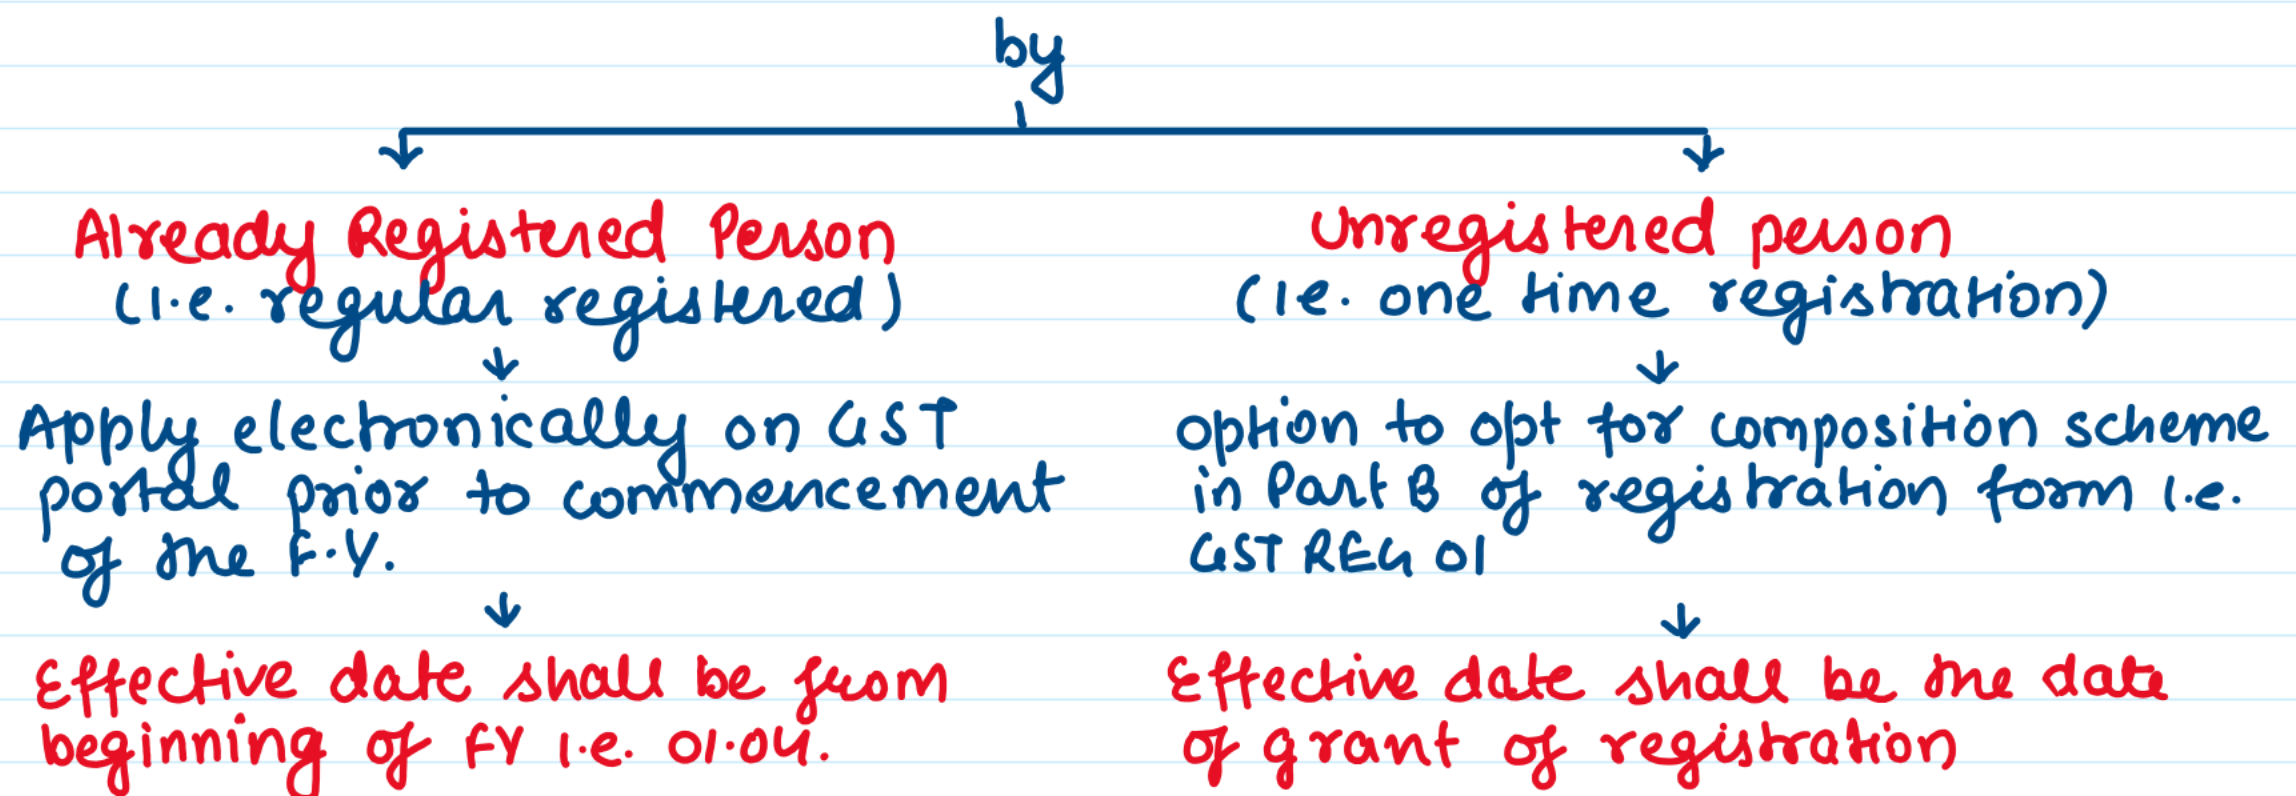 by
Already Registered Person
(i.e. regular registered)
Apply electronically on GST
portal prior to commencement
of the F.Y.
Effective date shall be from
beginning of FY i.e. 01.04.
Unregistered person
(ie. one time registration)
option to opt for composition scheme
in Part B of registration form i.e.
GST REG 01
Effective date shall be the date
of grant of registration